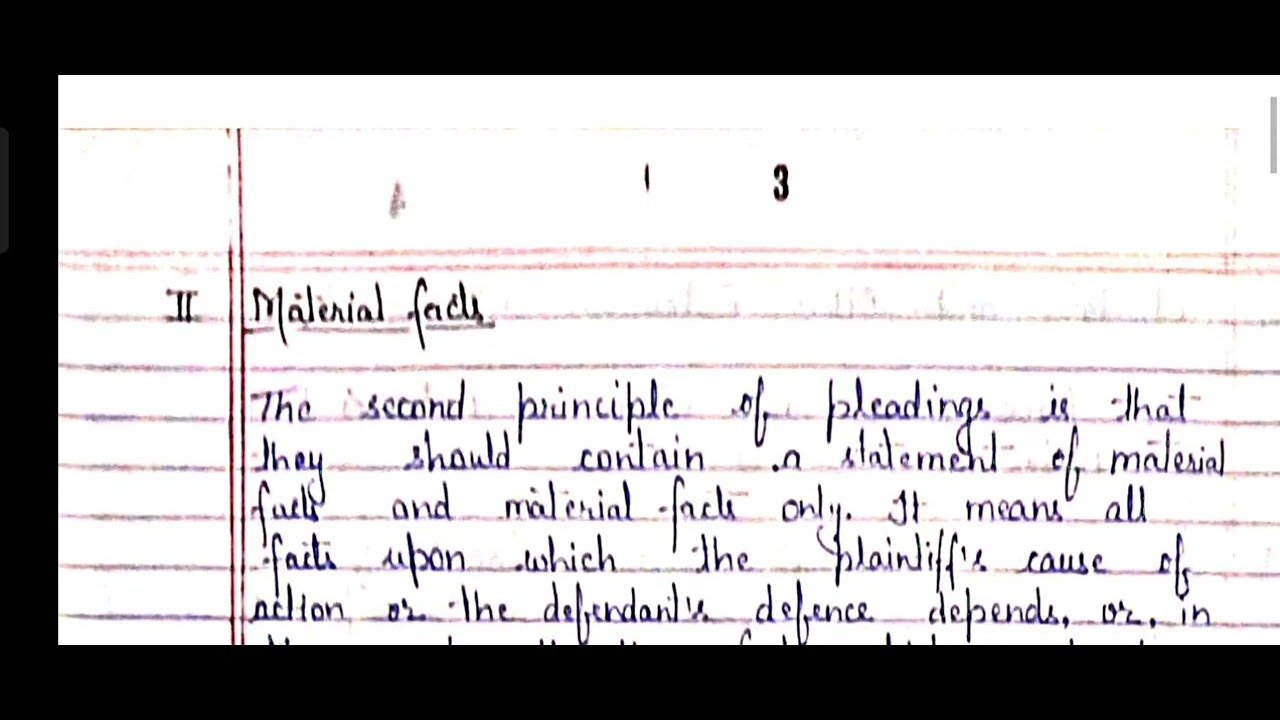 1 3
II Material facts
The second principle of pleadings is that
they should contain a statement of material
facts and material facts only. It means all
facts upon which the plaintiff's cause of
action or the defendant's defence depends, or, in